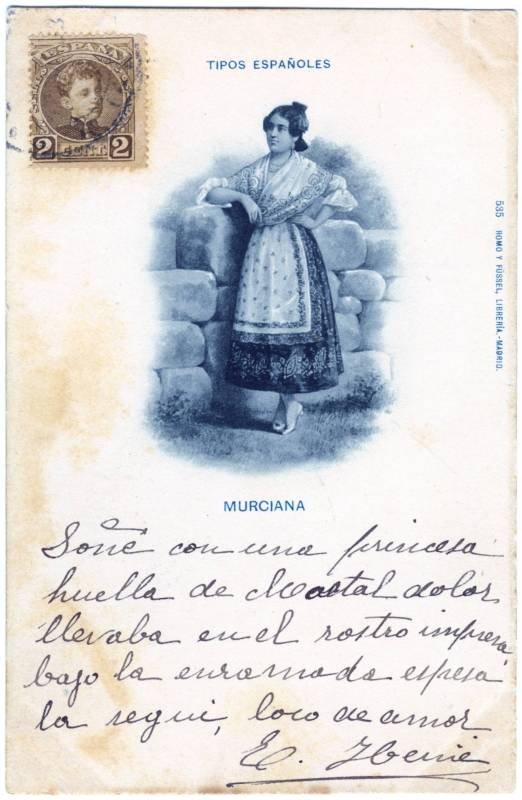 ESPAÑA
2 CENT. 2
TIPOS ESPAÑOLES
535 ROMO Y FÜSSEL, LIBRERÍA.-MADRID.
MURCIANA
Soñé con una princesa
huella de Mortal dolor
llevaba en el rostro impresa
bajo la enramada espesa
la segui, loco de amor
E.